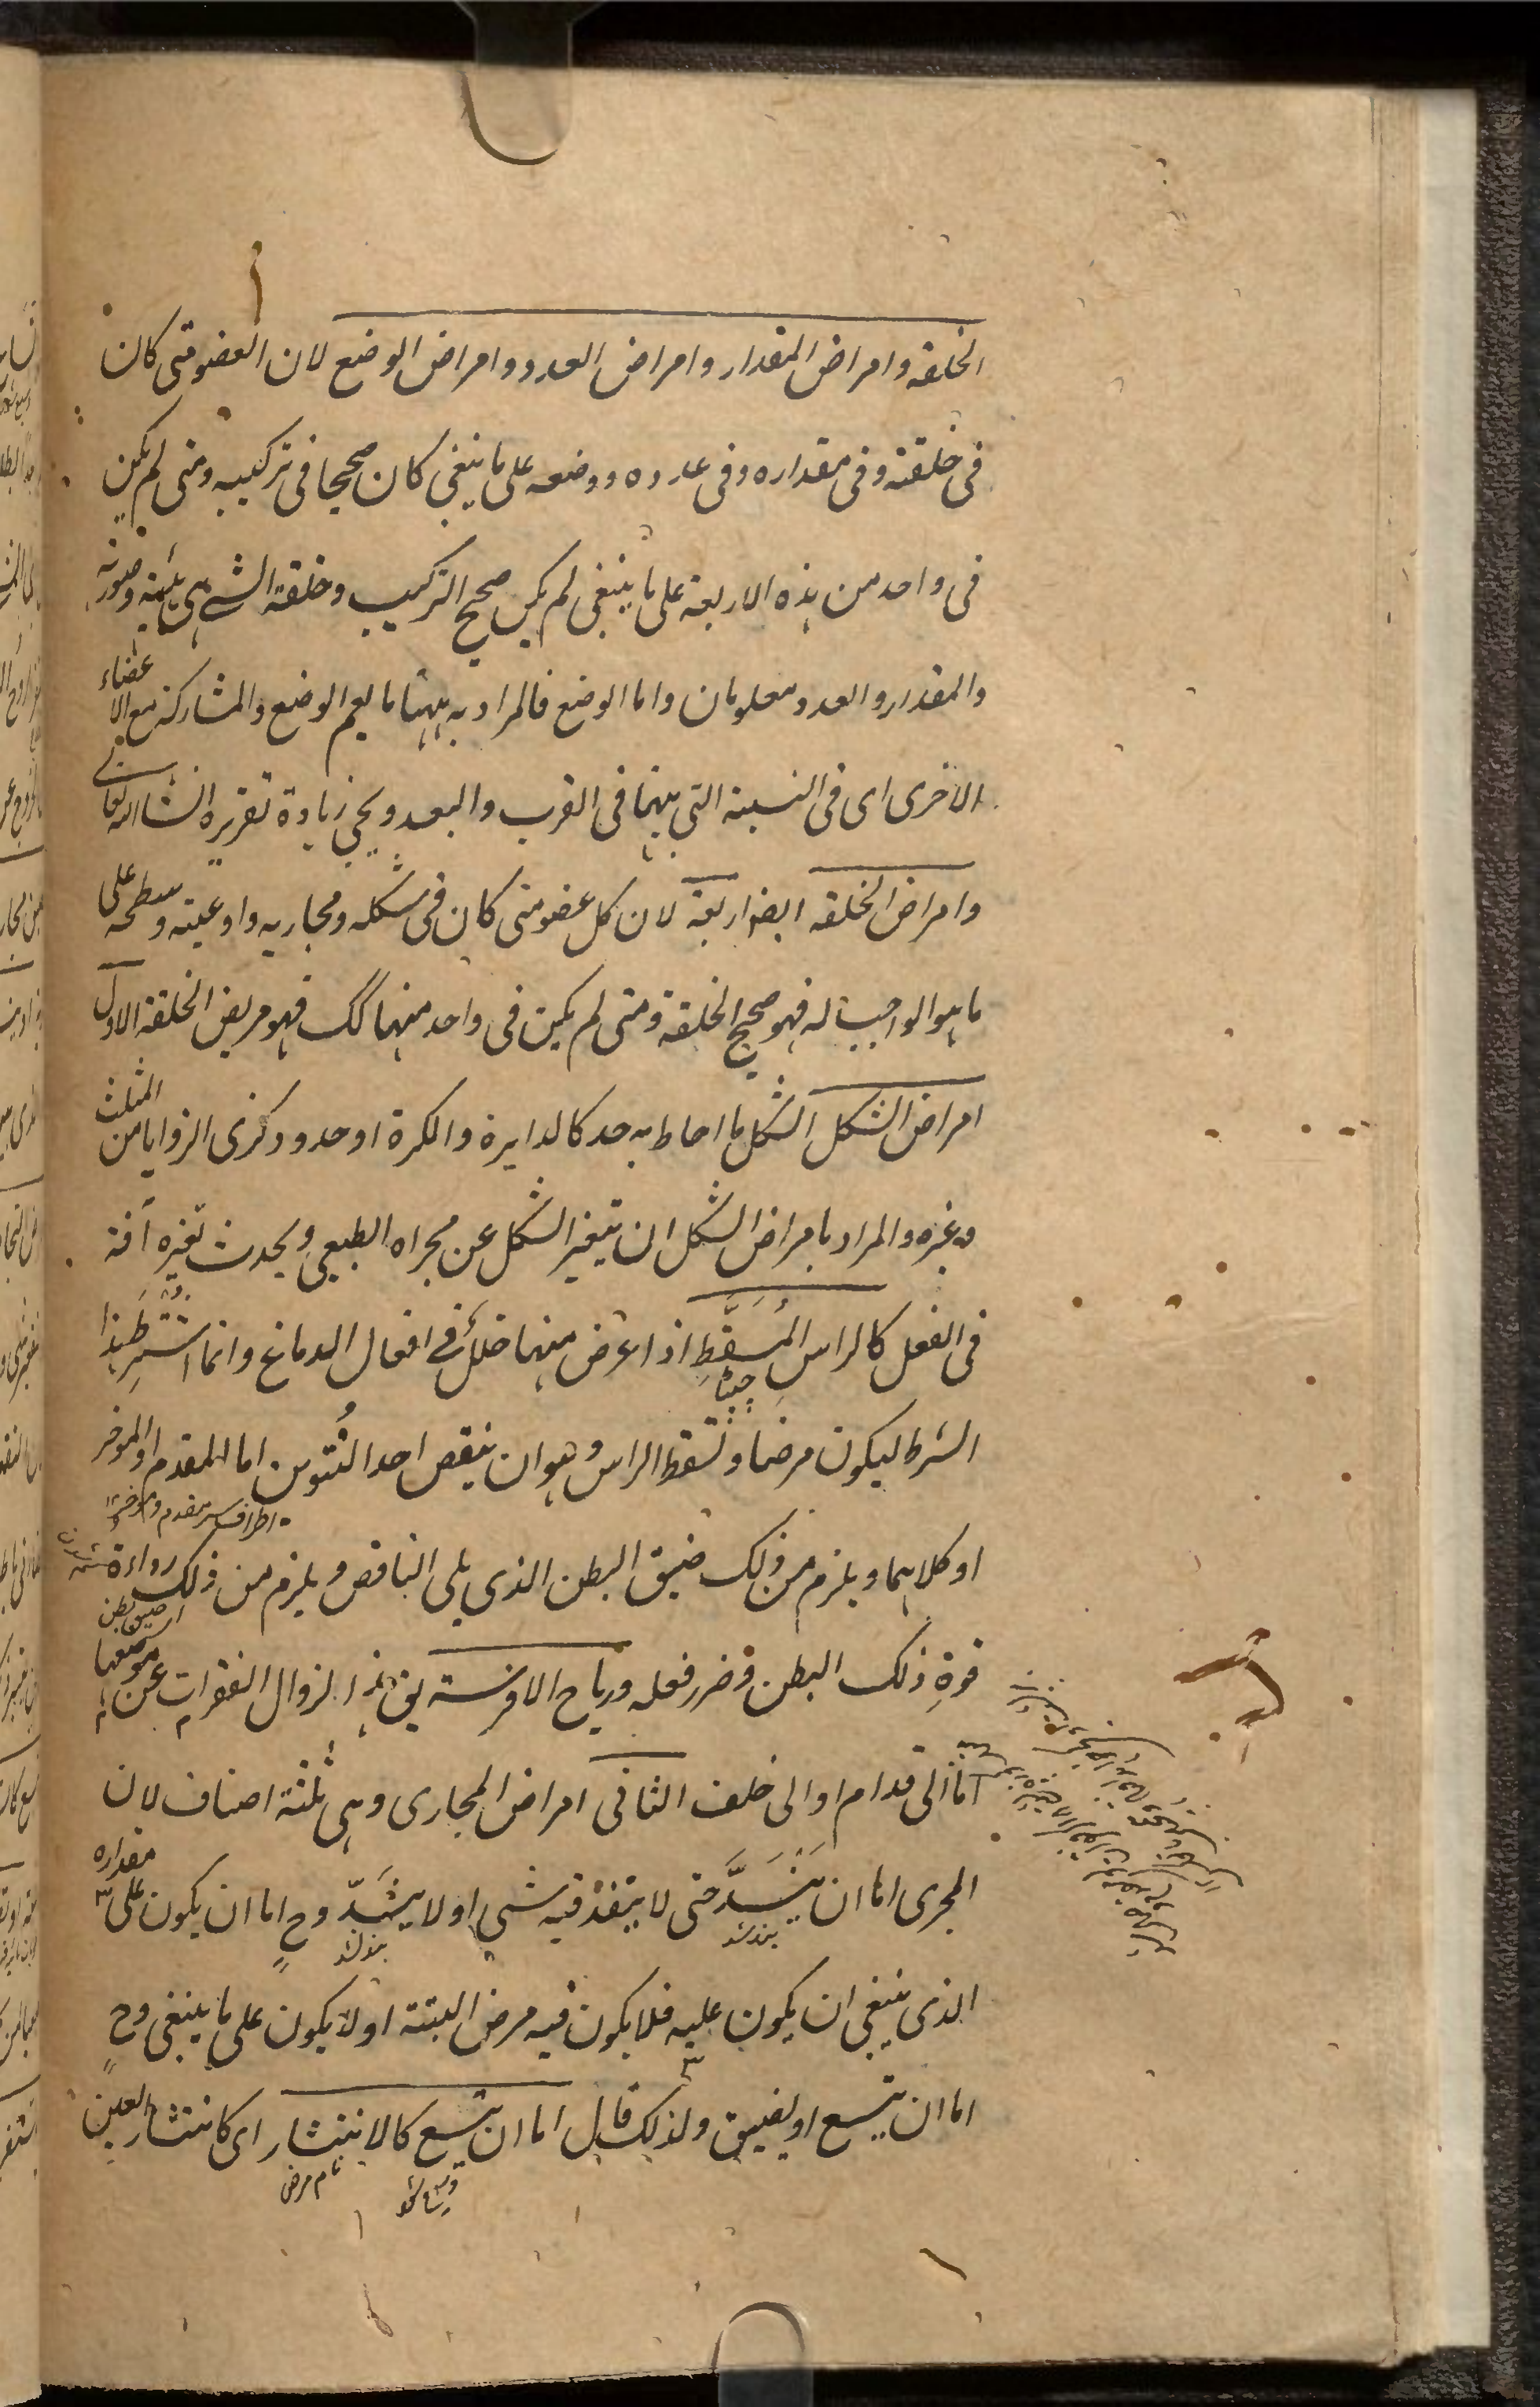 الخلقه وامراض المقدار وامراض العدد وامراض الوضع لان العضو متى كان
فى خلقته وفى مقداره وفى عدده ووضعه على ما ينبغى كان صحيحا فى تركيبه ومتى لم يكن
فى واحد من هذه الاربعة على ما ينبغى لم يكن صحيح التركيب وخلقة الشى هى هيئته وصورته
والمقدار والعدد معلومان واما الوضع فالمراد به ههنا ما يعم الوضع والمشاركة مع الاعضاء
الاخرى اى فى النسبة التى بينهما فى القرب والبعد ويجى زيادة تقريره انشاالله تعالى
وامراض الخلقه ايضا اربعة لان كل عضو متى كان فى شكله ومجاريه واوعيته وسطحه على
ما هو الواجب له فهو صحيح الخلقة ومتى لم يكن فى واحد منهما كك فهو مريض الخلقة الاول
امراض الشكل الشكل ما احاط به حد كالدايرة والكرة او حدود كذى الزوايا من المثلث
وغيره والمراد بامراض الشكل ان يتغير الشكل عن مجراه الطبيعى ويحدث تغيره آفة
فى الفعل كالراس المُسَفَّطِ اذا عرض منهما خلل فى افعال الدماغ وانما اشتُرِطَ هذا
الشرط ليكون مرضا وتسفط الراس هو ان ينقص احد النُتوين اما المقدم او الموخر
اطراف سر مقدم وموخر
او كلاهما ويلزم من ذلك ضيق البطن الذى يلى الناقص ويلزم من ذلك رداءة
قوة ذلك البطن وضرر فعله ورياح الافرسة يق هذا لزوال الفقرات عن موضعها
اما الى قدام او الى خلف الثانى امراض المجارى وهى ثلثة اصناف لان
المجرى اما ان يَنْسَدَّ حتى لا ينفذ فيه شى او لا ينسَدّ وح اما ان يكون على مقداره
بند شد بند شد
الذى ينبغى ان يكون عليه فلا يكون فيه مرض البتة او لا يكون على ما ينبغى وح
اما ان يتسع او يضيق ولذلك قال اما ان يتسع كالانتشار اى كانتشار العين
نام مرض